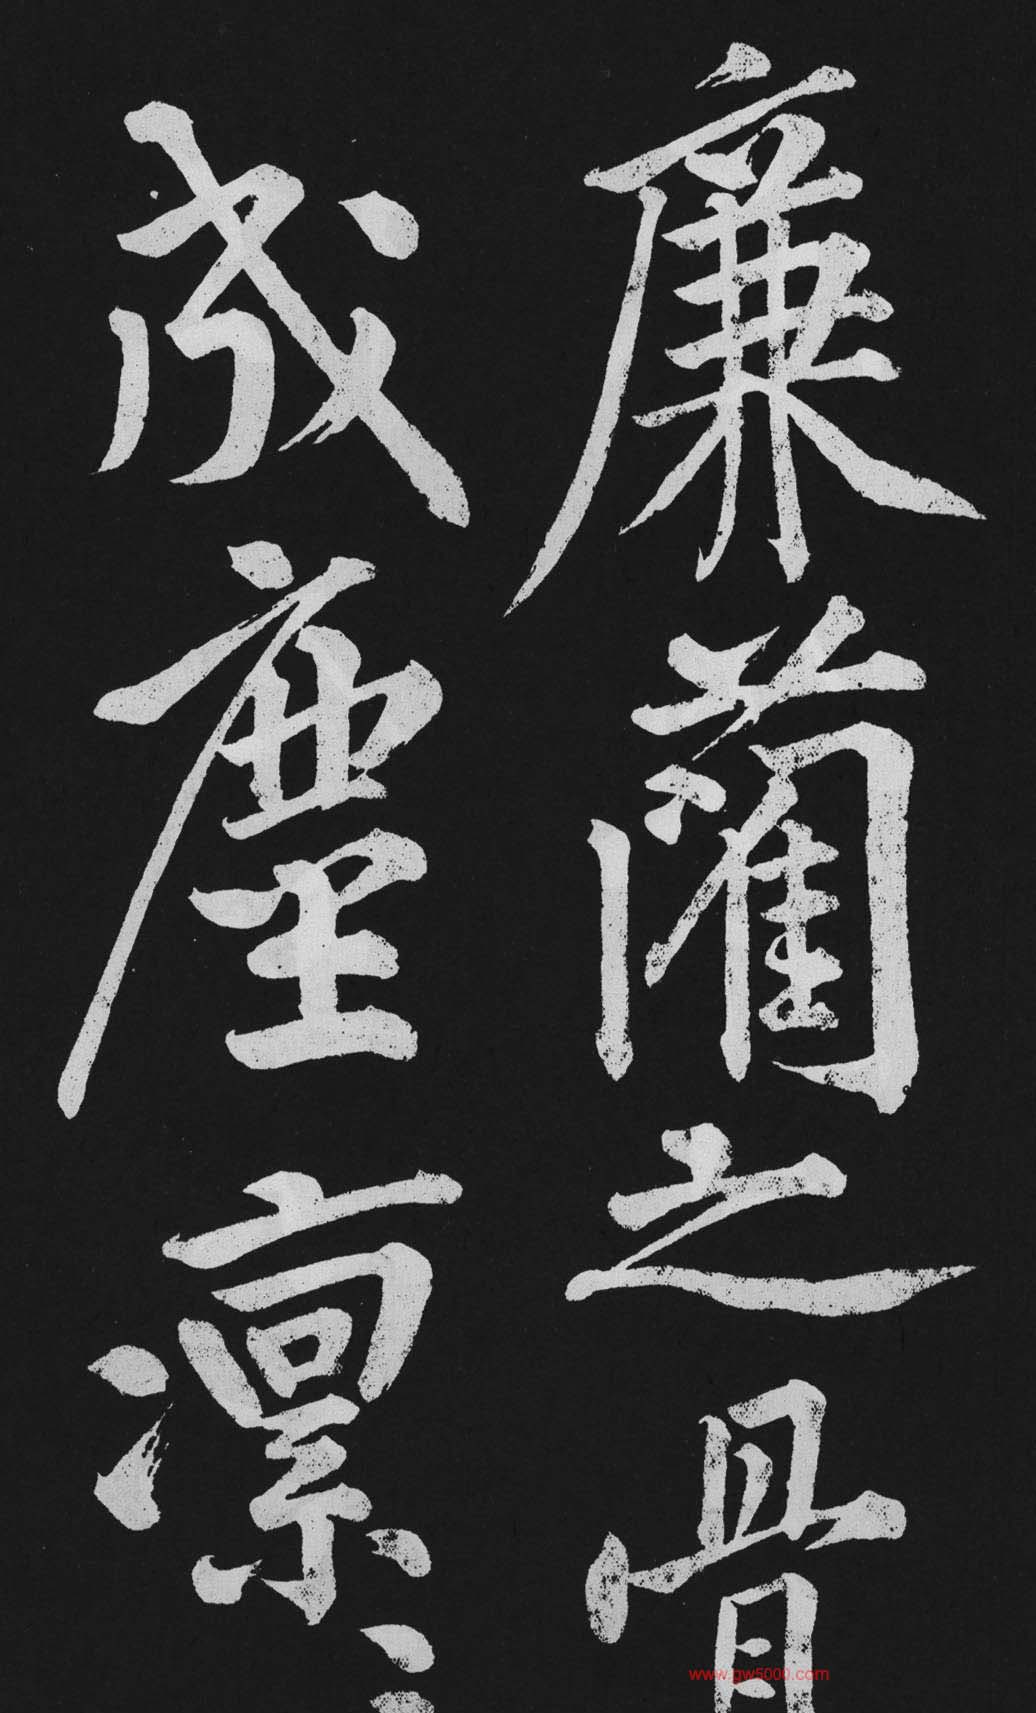 廉藺之骨
成塵凜〻
www.gw5000.com